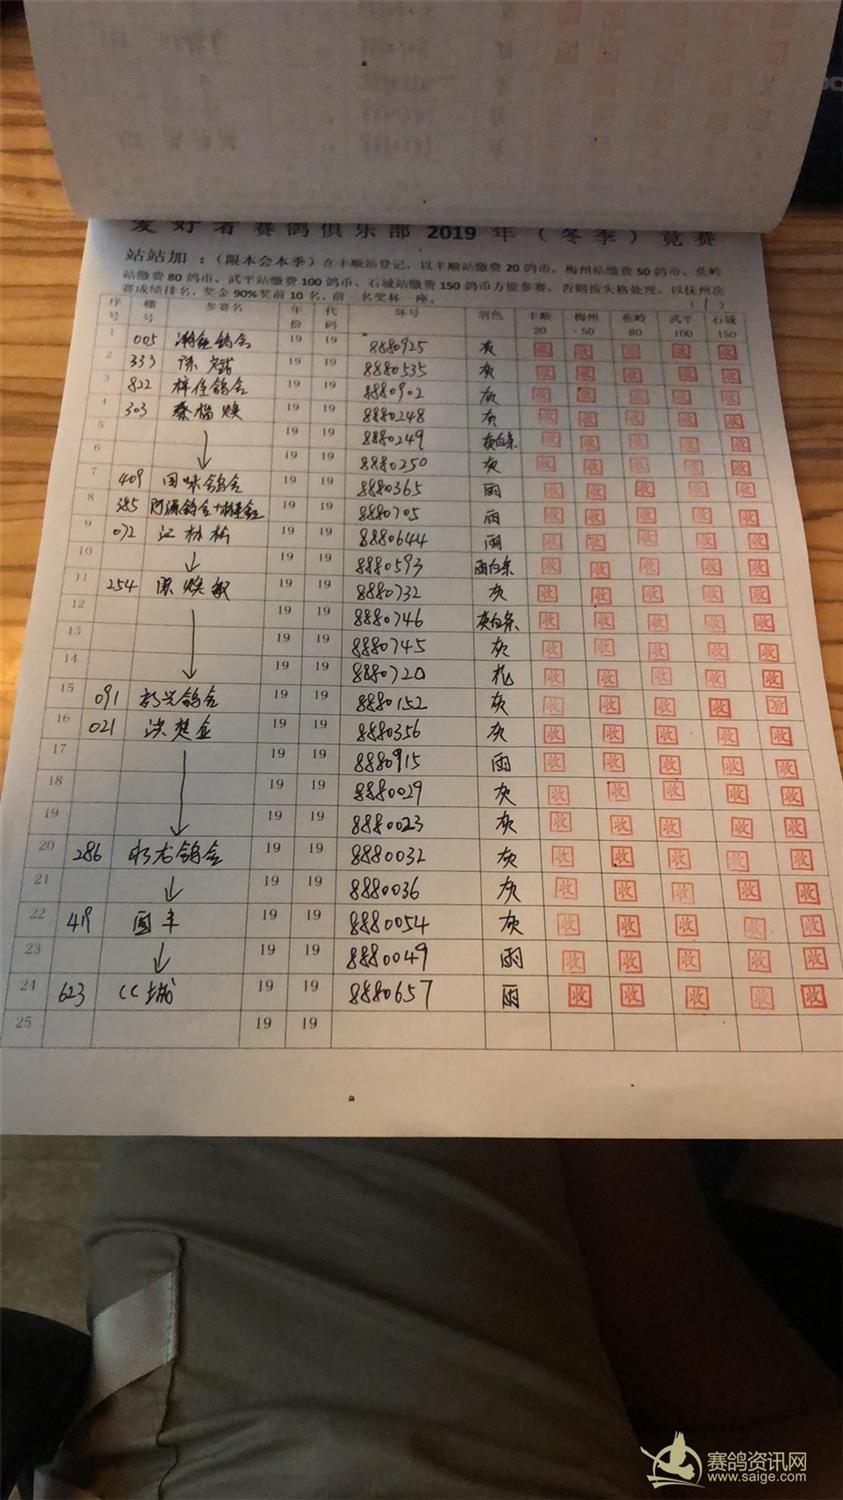 爱好者赛鸽俱乐部2019年（冬季）竞赛
站站加：（限本会本季）在丰顺站登记，以丰顺站缴费20鸽币，梅州站缴费50鸽币、蕉岭
站缴费80鸽币、武平站缴费100鸽币、石城站缴费150鸽币方能参赛，否则按失格处理，以抚州决
赛成绩排名，奖金90%奖前10名，前三名奖杯一座。
（1）
序号 棚号 参赛名 年份 代码 环号 羽色 丰顺20 梅州·50 蕉岭80 武平100 石城150
1 005 鸽舍 19 19 8880925 灰 收 收 收 收 收
2 333 陈 19 19 8880535 灰 收 收 收 收 收
3 822 梓佳鸽舍 19 19 8880902 灰 收 收 收 收 收
4 303 蔡榕焕 19 19 8880248 灰 收 收 收 收 收
5 19 19 8880249 灰白条 收 收 收 收 收
6 19 19 8880250 灰 收 收 收 收 收
7 409 国味鸽舍 19 19 8880365 雨 收 收 收 收 收
8 385 阿 鸽舍+ 19 19 8880705 雨 收 收 收 收 收
9 072 江林松 19 19 8880644 雨 收 收 收 收 收
10 19 19 8880593 雨白条 收 收 收 收 收
11 254 陈焕敏 19 19 8880732 灰 收 收 收 收 收
12 19 19 8880746 灰白条 收 收 收 收 收
13 19 19 8880745 灰 收 收 收 收 收
14 19 19 8880720 花 收 收 收 收 收
15 091 新兴鸽舍 19 19 8880152 灰 收 收 收 收 收
16 021 洪楚金 19 19 8880356 灰 收 收 收 收 收
17 19 19 8880915 雨 收 收 收 收 收
18 19 19 8880029 灰 收 收 收 收 收
19 19 19 8880023 灰 收 收 收 收 收
20 286 永龙鸽舍 19 19 8880032 灰 收 收 收 收 收
21 19 19 8880036 灰 收 收 收 收 收
22 419 国丰 19 19 8880054 灰 收 收 收 收 收
23 19 19 8880049 雨 收 收 收 收 收
24 623 CC城 19 19 8880657 雨 收 收 收 收 收
25 19 19
赛鸽资讯网
www.saige.com